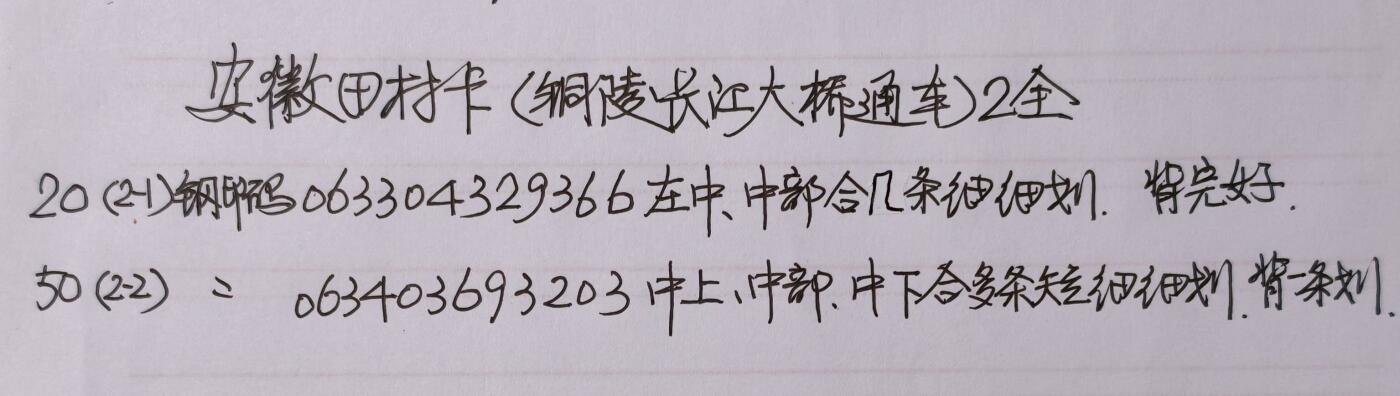 安徽田村卡(铜陵长江大桥通车)2全
20(2-1)钢印码063304329366左中、中部合几条细细划.背完好.
50(2-2) = 063403693203中上、中部.中下合多条短细细划.背一条划.